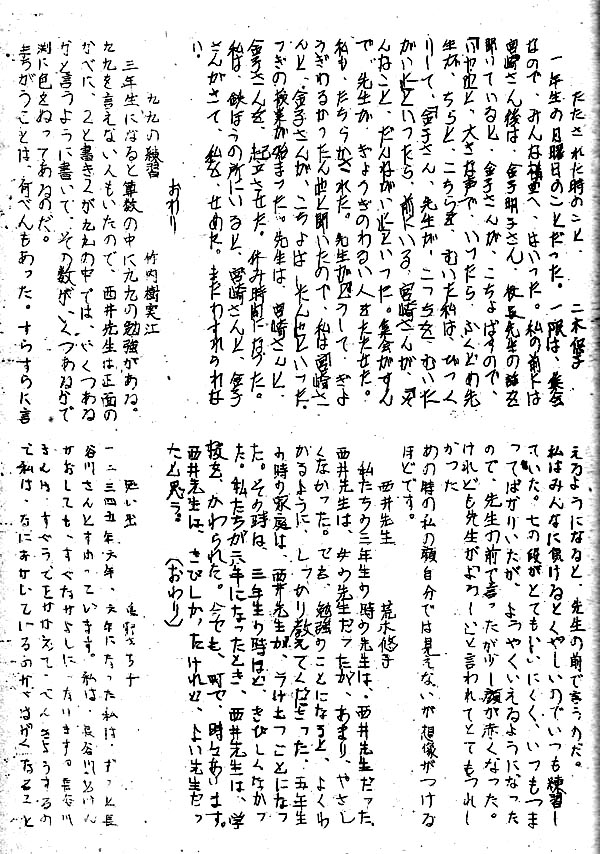 たたされた時のこと　二木保子
一年生の月曜日のことだった。一限は、集会
なので、みんな講堂へ、はいった。私の前には
宮崎さん後は、金子明子さん、校長先生の話を
聞いていると、金子さんが、こちょばすので、
といったら、前にいる、宮崎さんが、
んなこと、だんねがいといった。集会がすん
で、先生が、ぎょうぎのわるい人をたたせた。
私も、たちらかされた。先生がどうして、ぎょ
うぎわるかったんと聞いたので、私は宮崎さ
んと、金子さんが、こちょば
つぎの授業が始まった。先生は、宮崎さんと、
金子さんを、起立させた。休み時間になった。
私は、鉄ぼうの所にいると、宮崎さんと、金子
さんがきて、私を、せめた。まだわすれられな
い。
おわり
九九の練習　竹内樹実江
三年生になると算数の中に九九の勉強がある。
九九を言えない人もいたので、西井先生は正面の
かべに、2と書き2が九九の中では、いくつある
かと言うように書いて、その数が、いくつあるかで
渕に色をぬってあるのだ。
まちがうことは、何べんもあった。すらすらに言
えるようになると、先生の前で言うのだ。
私はみんなに負けるとくやしいのでいつも練習し
ていた。七の段がとてもいいにくく、いつもつま
ってばかりいたが、ようやくいえるようになった
ので、先生の前で言ったが少し顔が赤くなった。
けれども先生がよろしいと言われてとてもうれし
かった
あの時の私の顔自分では見えないが想像がつける
ほどです。
西井先生　荒木悠子
私たちの三年生の時の先生は、西井先生だった。
西井先生は、女の先生だったが、あまり、やさし
くなかった。でも、勉強のことになると、よくわ
かるように、しっかり教えてくださった。五年生
の時の家庭は、西井先生が、うけもつことになっ
た。その時は、三年生の時ほど、きびしくなかっ
た。私たちが六年になったとき、西井先生は、学
校を、かわられた。今でも、町で、時々あいます。
西井先生は、きびしかったけれど、よい先生だっ
たと思う。　（おわり）
思い出
一、二、三、四、五年、六年、六年になった私は、ずっと長
谷川さんとすわっています。私は、長谷川さんとけん
かをしても、すぐなかよしになります。長谷川
さんは、すぐうでをかかえて、べんきょうするの
で私は、なにをかいているのかさっぱりなること